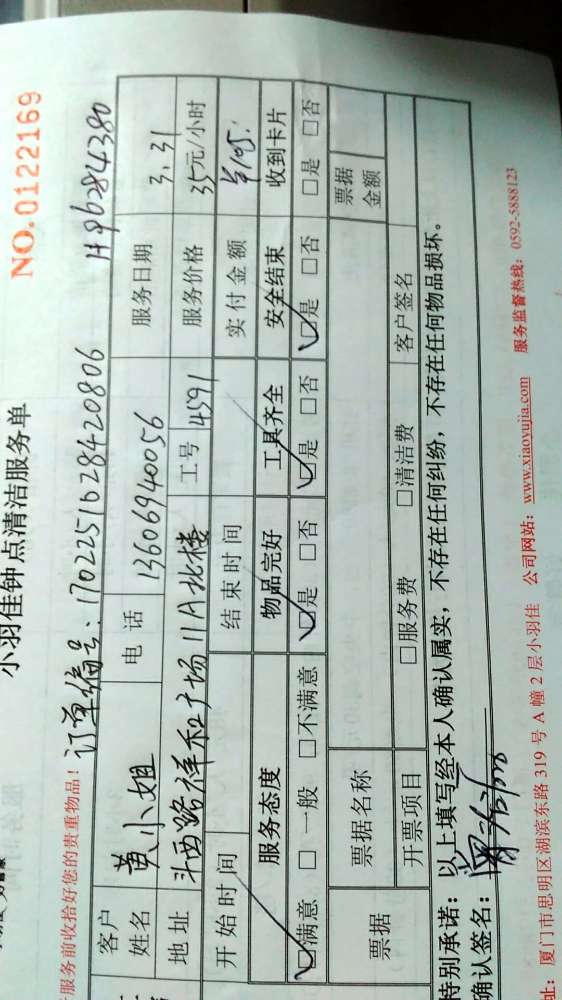 小羽佳钟点清洁服务单
NO.0122169
服务前收拾好您的贵重物品！订单编号：170225162842​0806
客户姓名 黄小姐 电话 13606940056 服务日期 3.31
地址 斗西路祥和广场11A北楼 工号 4591 服务价格 35元/小时
开始时间 结束时间 实付金额
服务态度 物品完好 工具齐全 安全结束 收到卡片
☑满意 □一般 □不满意 ☑是 □否 ☑是 □否 ☑是 □否 □是 □否
票据 票据名称 票据金额
开票项目 □服务费 □清洁费 客户签名
特别承诺：以上填写经本人确认属实，不存在任何纠纷，不存在任何物品损坏。
确认签名：
址：厦门市思明区湖滨东路 319 号 A 幢 2 层小羽佳 公司网站：www.xiaoyujia.com 服务监督热线：0592-5888123